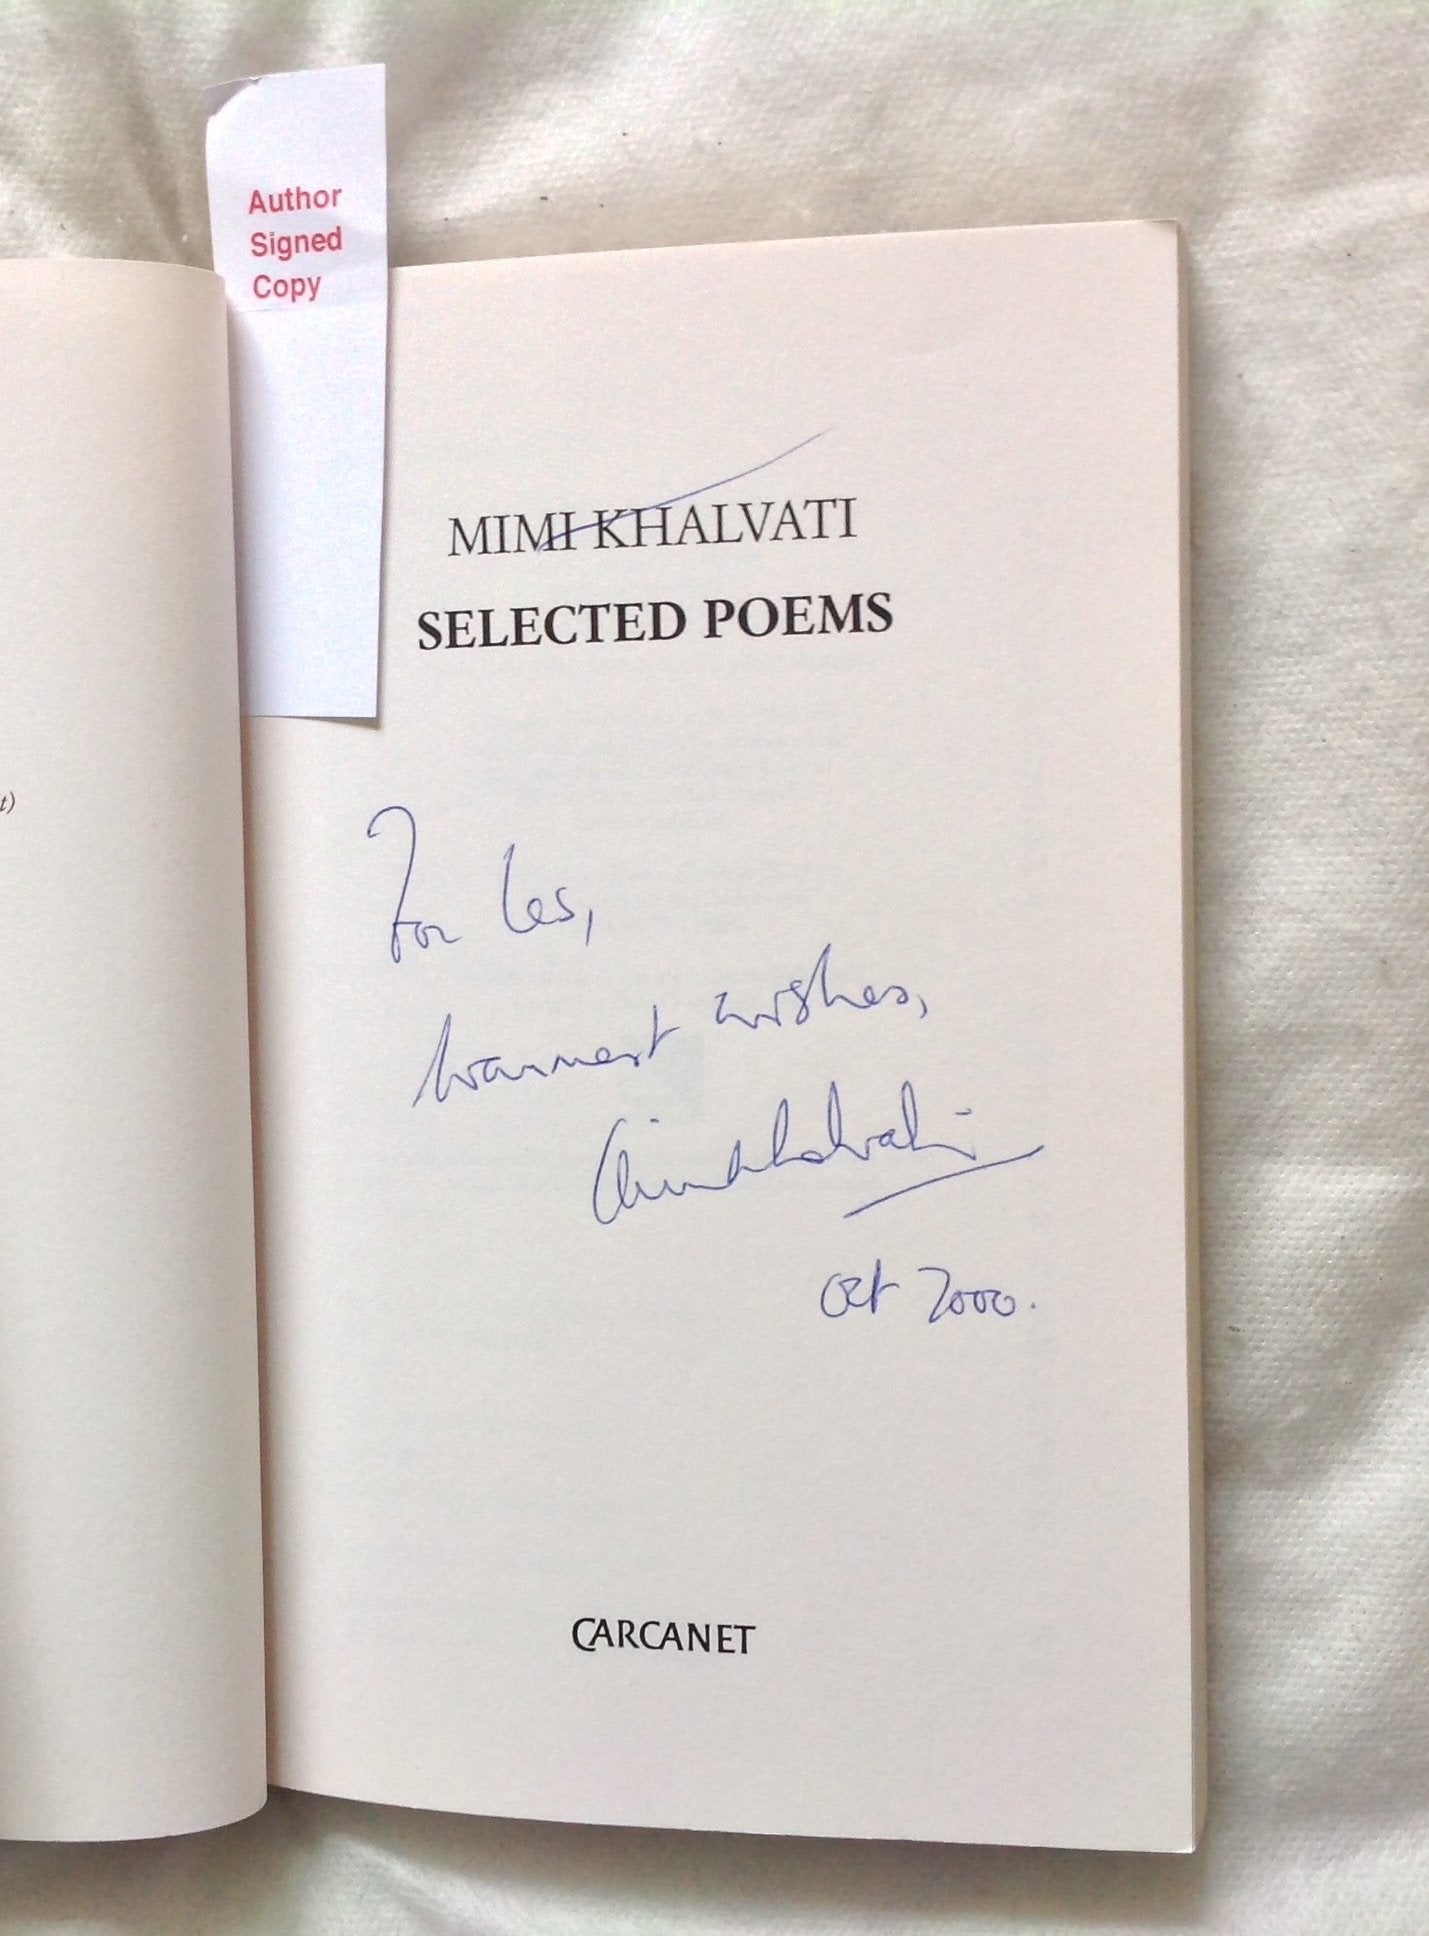 Author
Signed
Copy
t)
MIMI KHALVATI
SELECTED POEMS
For Les,
Warmest wishes,
Mimi Khalvati
Oct 2000.
CARCANET